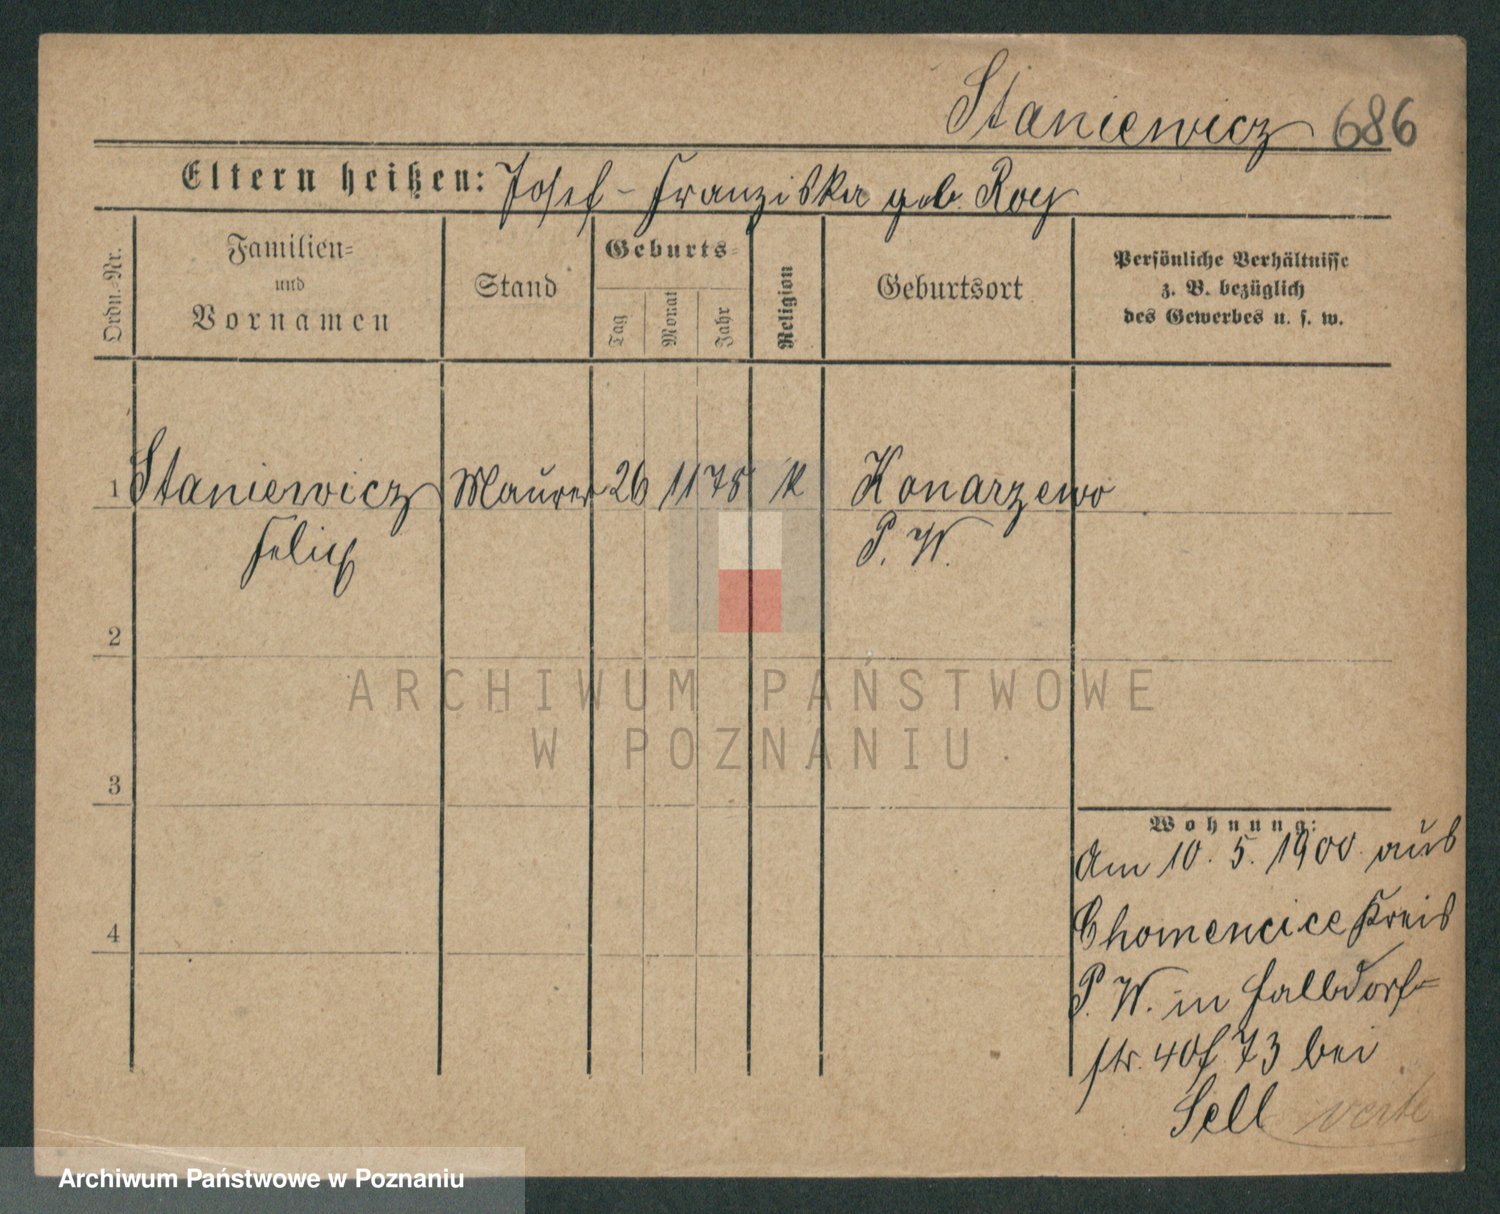 Staniewicz 686
Eltern heißen: Josef - Franziska geb. Roy
Ordn.-Nr.
Familien-
und
Vornamen
Stand
Geburts-
Tag
Monat
Jahr
Religion
Geburtsort
Persönliche Verhältnisse
z. B. bezüglich
des Gewerbes u. s. w.
1 Staniewicz Maurer 26 11 78 K Konarzewo
Felix P. W.
2
3
4
Wohnung:
Am 10. 5. 1900 aus
Chomencice Kreis
P. W. in
str. 73 bei
Sell verte
ARCHIWUM PAŃSTWOWE
W POZNANIU
Archiwum Państwowe w Poznaniu